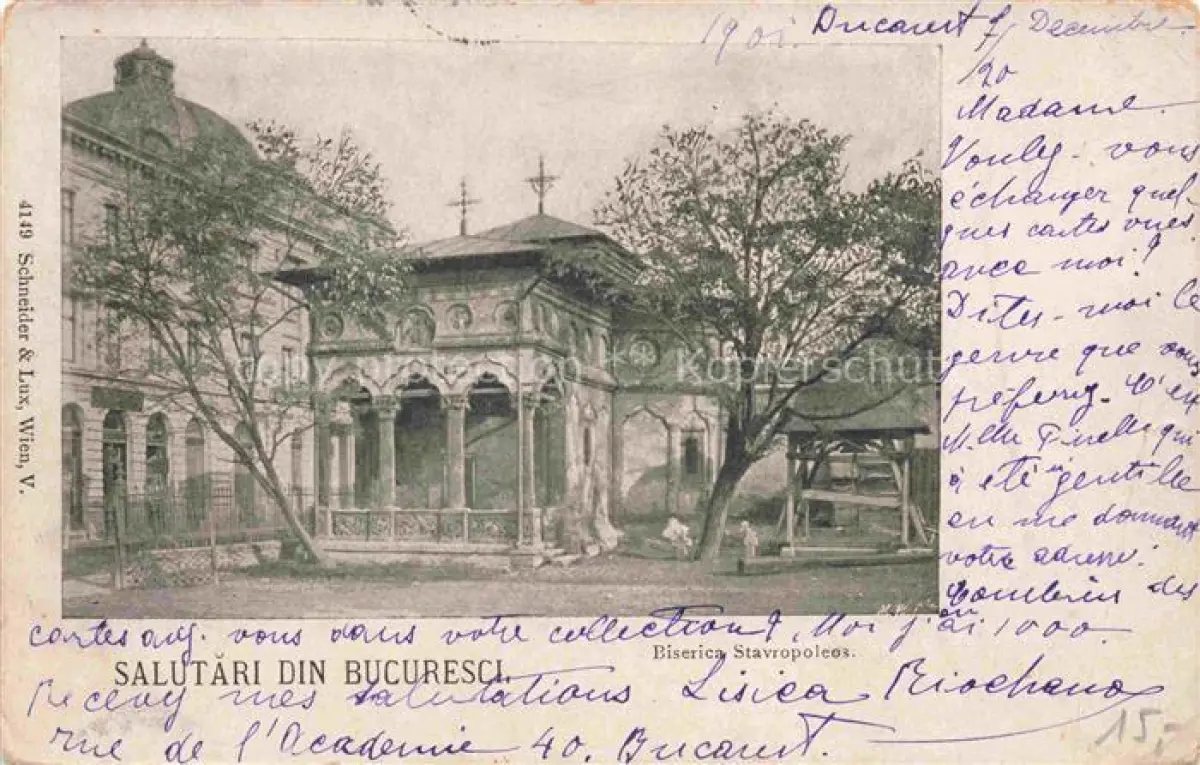 1901. Bucarest 7/20 Decembre.
Madame.
Vouly-vous
échanger quel-
ques cartes vues.
avec moi?
Dites-moi le
genre que vous
préferez. C'est
Mlle qui
a été si gentille
en me donnant
votre adresse.
Combien des
cartes avz. vous dans votre collection? Moi j'en ai 1000.
Biserica Stavropoleos.
SALUTĂRI DIN BUCURESCI.
Recevez mes salutations Lisica
rue de l'Academie 40. Bucarest.
15.-
4149 Schneider & Lux, Wien, V.
copy protection * Kopierschutz